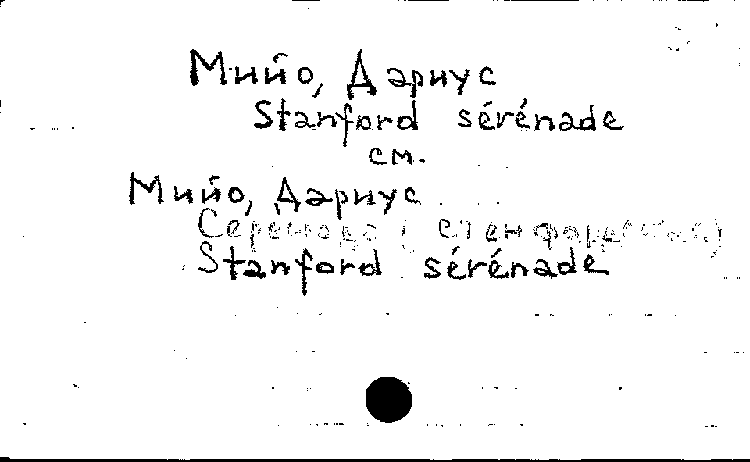 Мийо, Дариус
Stanford sérénade
см.
Мийо, Дариус
Серенада (Стенфордская)
Stanford sérénade